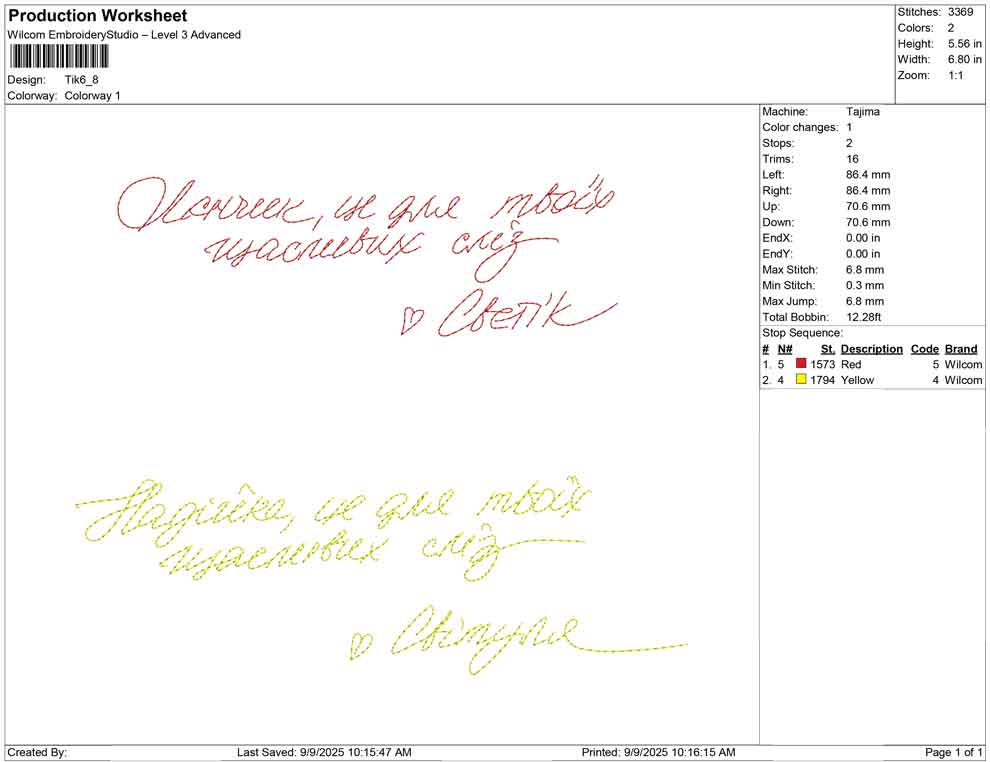 Production Worksheet
Wilcom EmbroideryStudio – Level 3 Advanced
Design: Tik6_8
Colorway: Colorway 1
Stitches: 3369
Colors: 2
Height: 5.56 in
Width: 6.80 in
Zoom: 1:1
Machine: Tajima
Color changes: 1
Stops: 2
Trims: 16
Left: 86.4 mm
Right: 86.4 mm
Up: 70.6 mm
Down: 70.6 mm
EndX: 0.00 in
EndY: 0.00 in
Max Stitch: 6.8 mm
Min Stitch: 0.3 mm
Max Jump: 6.8 mm
Total Bobbin: 12.28ft
Stop Sequence:
# N# St. Description Code Brand
1. 5 1573 Red 5 Wilcom
2. 4 1794 Yellow 4 Wilcom
це для твоїх
щасливих сліз
Светік
Надійка, це для твоїх
щасливих сліз
Світуля
Created By: Last Saved: 9/9/2025 10:15:47 AM Printed: 9/9/2025 10:16:15 AM Page 1 of 1